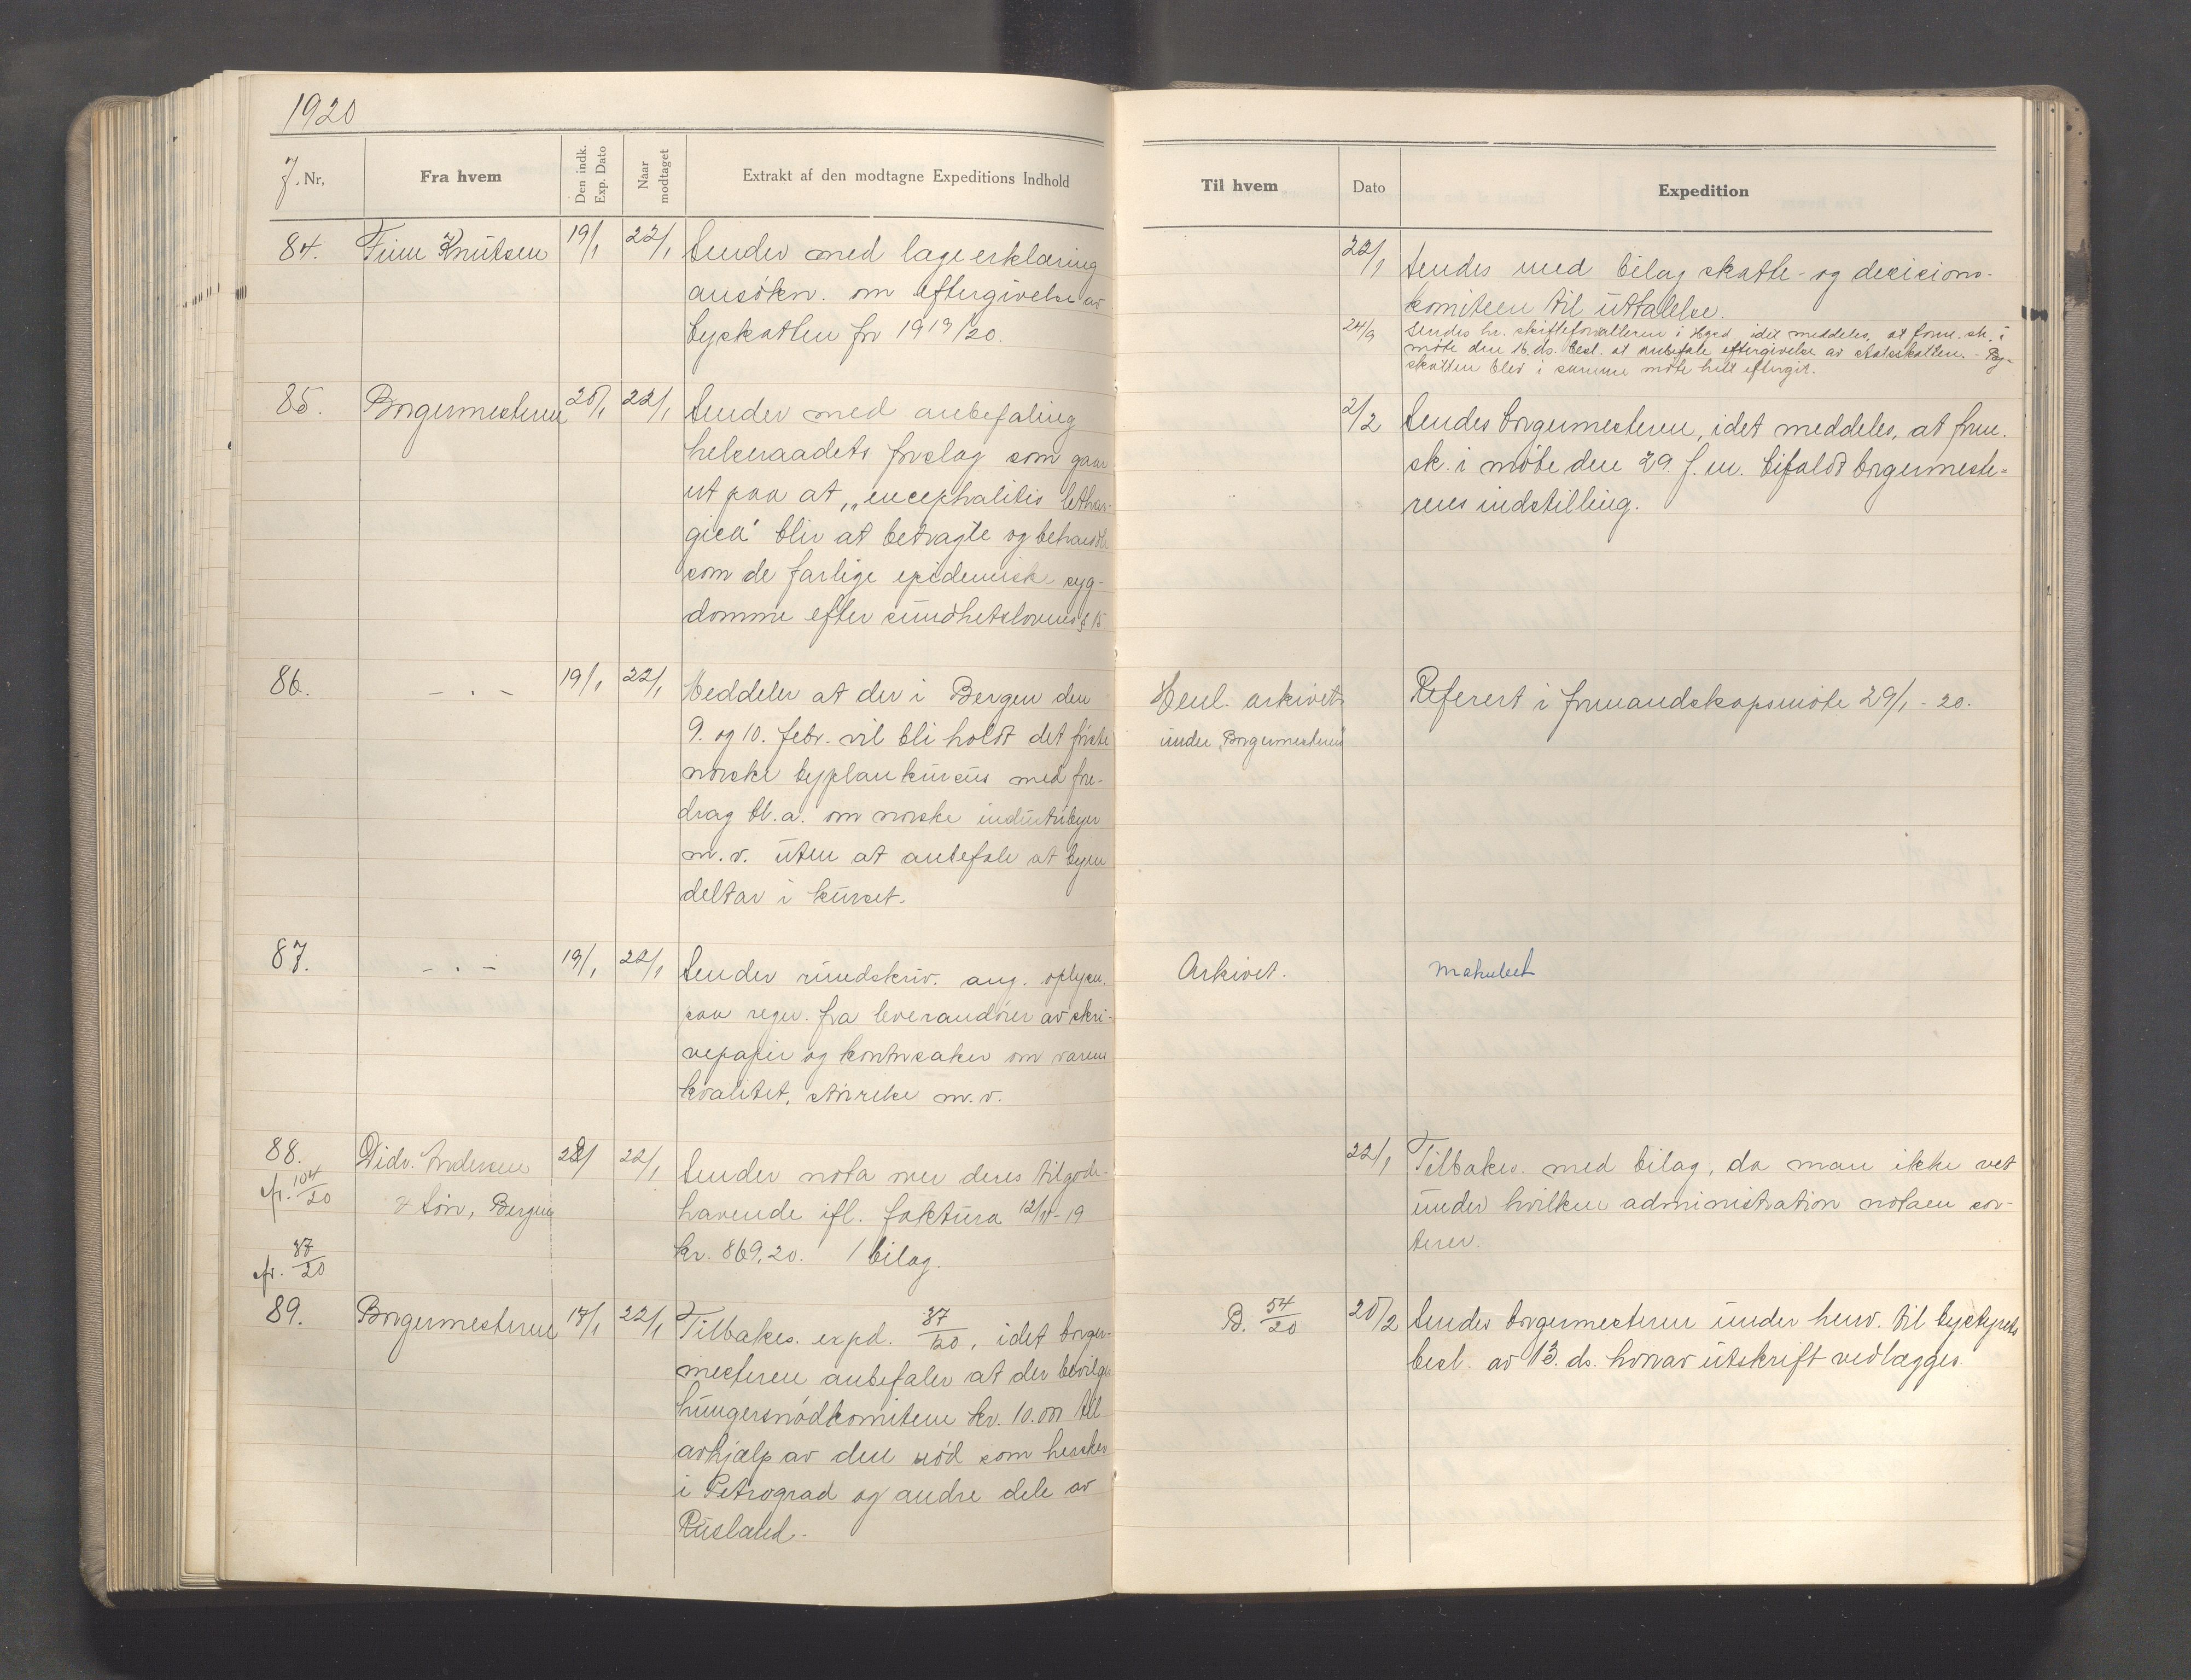 1920
J. Nr.
Fra hvem
Den indk. Exp. Dato
Naar modtaget
Extrakt af den modtagne Expeditions Indhold
Til hvem
Dato
Expedition
84. Finn Knutsen 19/1 22/1 Sender med lægeerklæring
ansökn. om eftergivelse av
byskatten for 1919/20.
22/1 Sendes med bilag skatte- og decisions-
komiteen til uttalelse.
24/9 Sendes hr. skifteforvalteren i Hgsd. idet meddeles, at form.sk. i
møte den 16. ds. besl. at anbefale eftergivelse av statsskatten. - By-
skatten blev i samme møte helt eftergit.
85. Borgermesteren 20/1 22/1 Sender med anbefaling
helseraadets forslag som gaar
ut paa at „encephalitis lethar-
gica" blir at betragte og behandle
som de farlige epidemiske syg-
domme efter sundhetslovens § 15
2/2 Sendes borgermesteren, idet meddeles, at form.
sk. i møte den 29. f.m. bifaldt borgermeste-
rens indstilling.
86. - . - 19/1 22/1 Meddeler at der i Bergen den
9. og 10. febr. vil bli holdt det første
norske byplankursus med fore-
drag bl.a. om norske industribyer
m.v. uten at anbefale at byen
deltar i kurset.
Henl. arkivet
under „Borgermesteren"
Referert i formandskapsmøte 29/1 - 20.
87. - . - 19/1 22/1 Sender rundskriv. ang. oplysn.
paa regn. fra leverandører av skri-
vepapir og kontorsaker om varens
kvalitet, størrelse m.v.
Arkivet.
Makulert
88. Didr. Andersen 22/1 22/1 Sender nota over deres tilgode-
cfr. 104/20
& Søn, Bergen
havende ifl. faktura 12/11-19
kr. 869,20. 1 bilag.
22/1 Tilbakes. med bilag, da man ikke vet
under hvilken administration notaen sor-
terer.
cfr. 37/20
89. Borgermesteren 17/1 22/1 Tilbakes. expd. 37/20, idet borger-
mesteren anbefaler at der bevilges
hungersnødkomiteen kr. 10.000 til
avhjælp av den nød som hersker
i Petrograd og andre dele av
Rusland.
B. 54/20
20/2 Sendes borgermesteren under henv. til bystyrets
besl. av 13. ds. hvorav utskrift vedlægges.